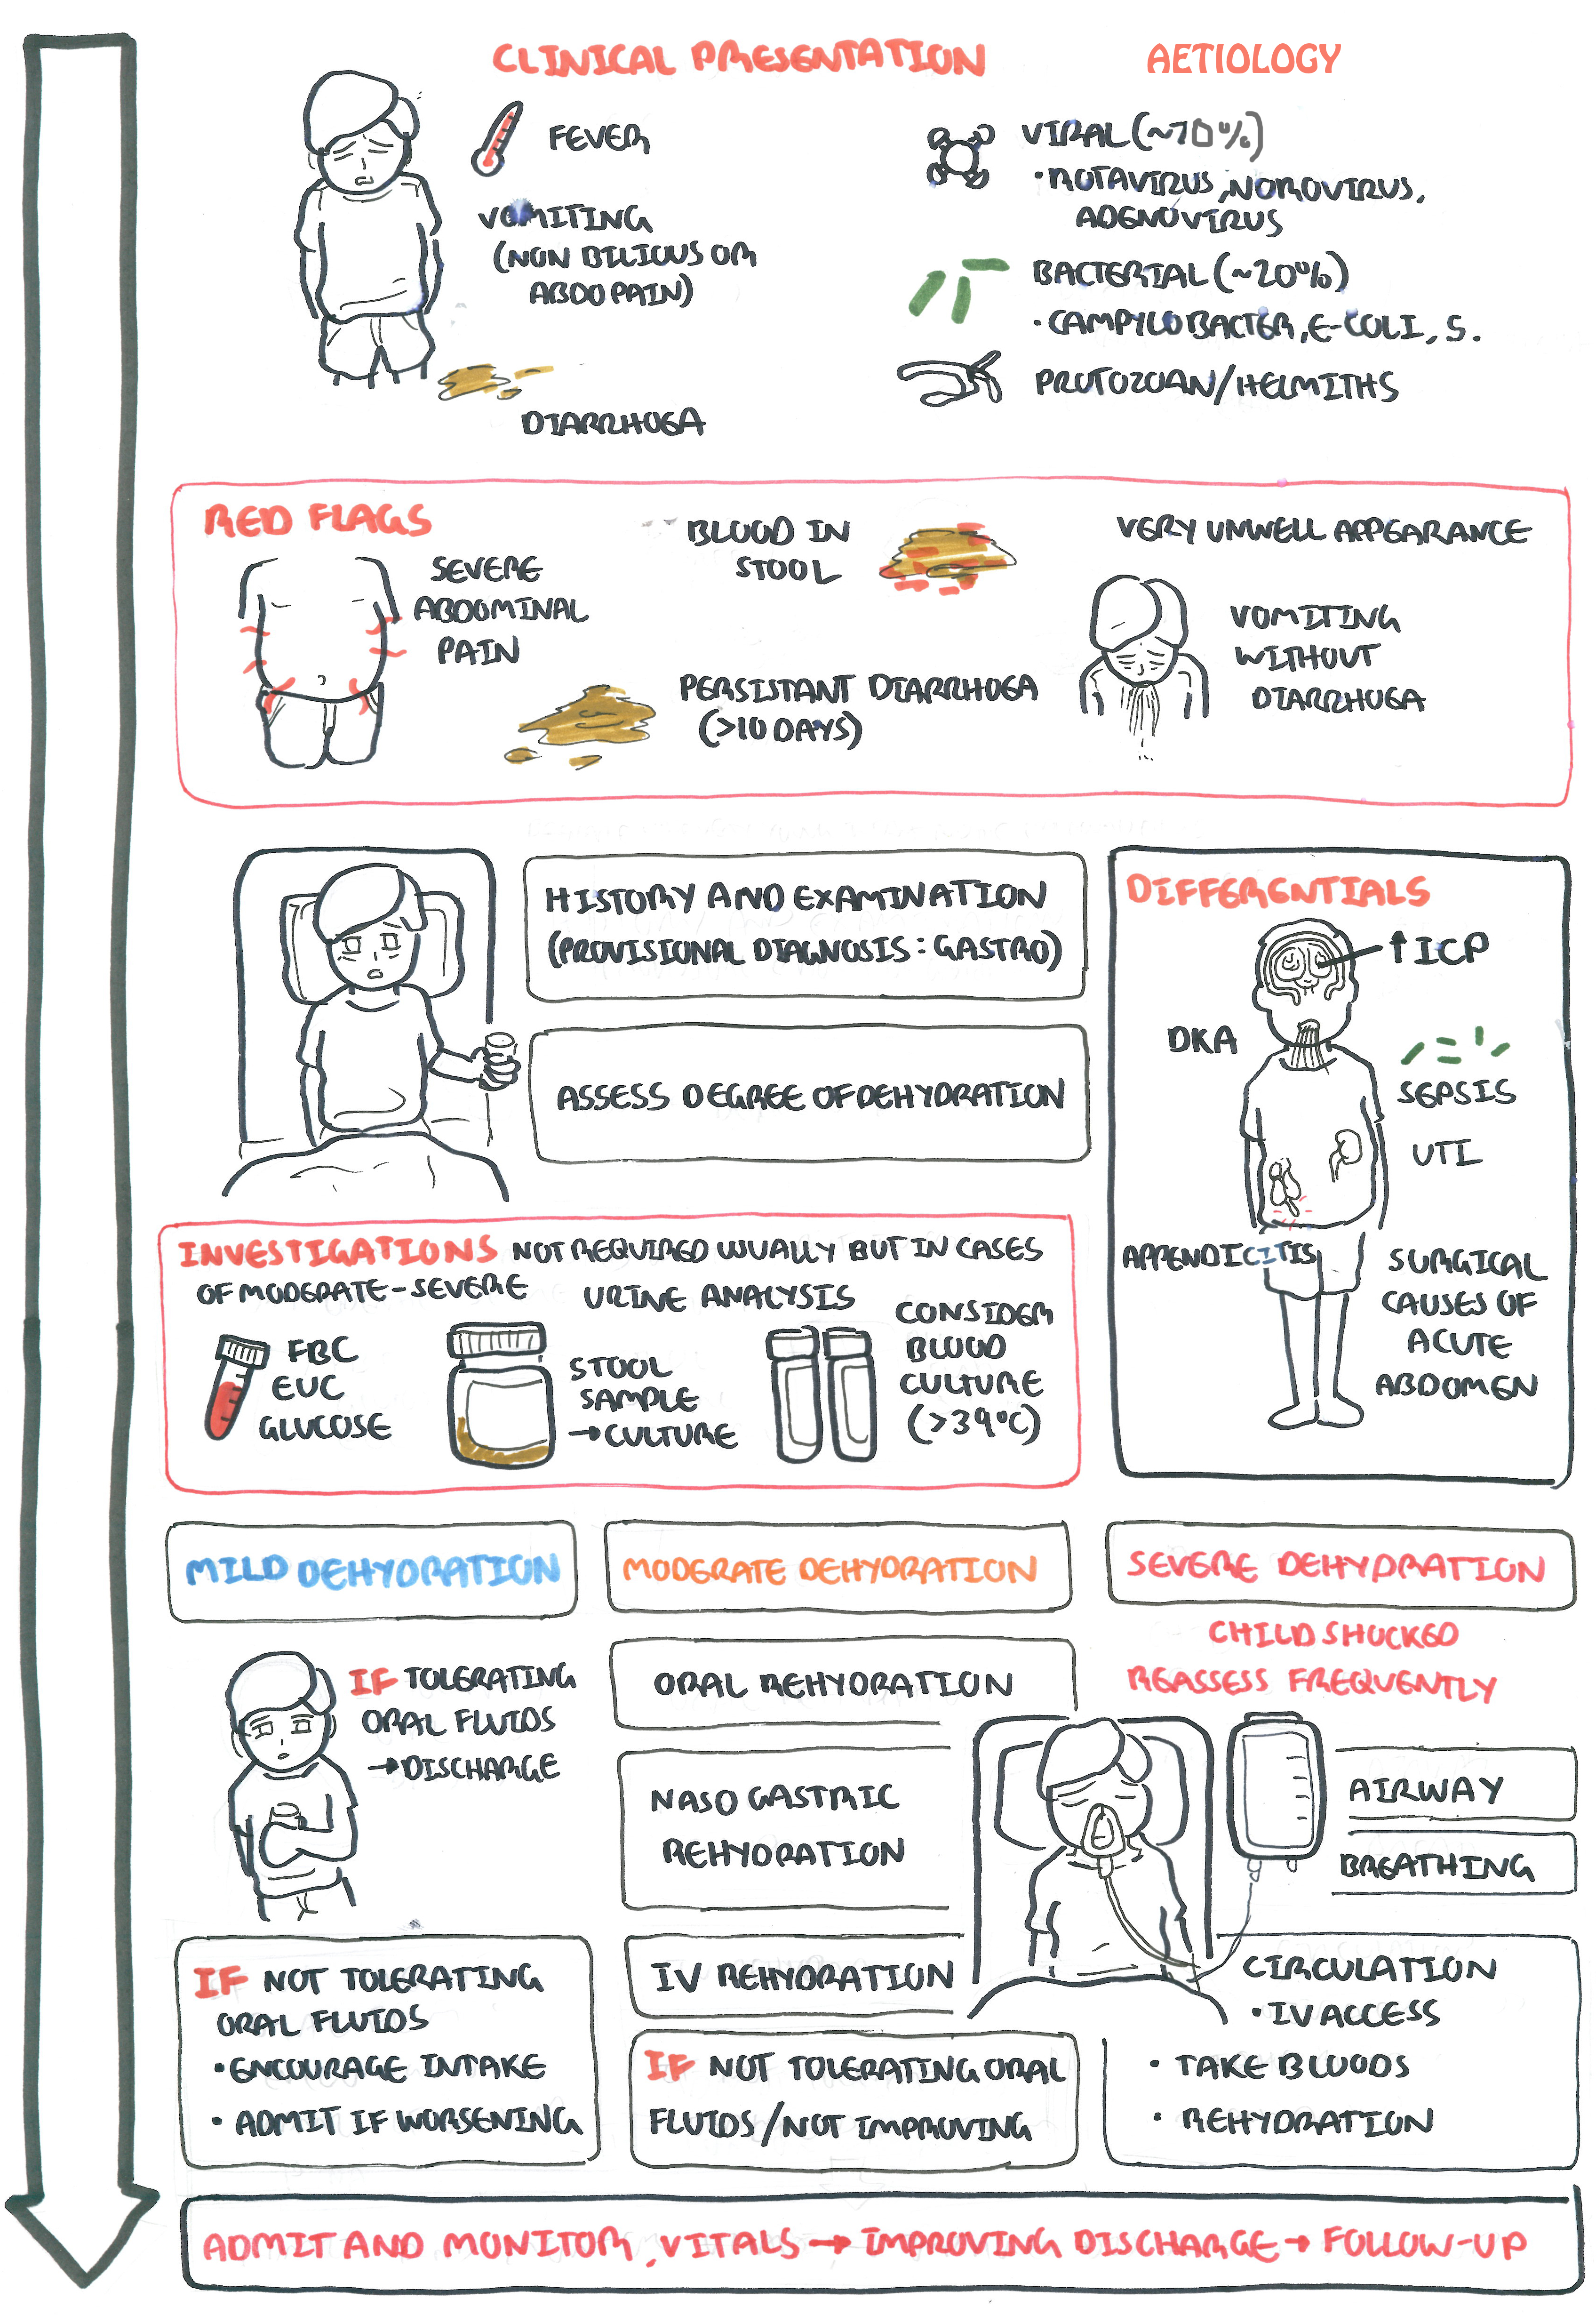 CLINICAL PRESENTATION
FEVER
VOMITING
(NON BILIOUS OR
ABDO PAIN)
DIARRHOEA
AETIOLOGY
VIRAL (~70%)
• ROTAVIRUS, NOROVIRUS,
ADENOVIRUS
BACTERIAL (~20%)
• CAMPYLOBACTER, E-COLI, S.
PROTOZOAN/HELMITHS
RED FLAGS
SEVERE
ABDOMINAL
PAIN
BLOOD IN
STOOL
PERSISTANT DIARRHOEA
(>10 DAYS)
VERY UNWELL APPEARANCE
VOMITING
WITHOUT
DIARRHOEA
HISTORY AND EXAMINATION
(PROVISIONAL DIAGNOSIS: GASTRO)
ASSESS DEGREE OF DEHYDRATION
DIFFERENTIALS
↑ICP
DKA
SEPSIS
UTI
APPENDICITIS
SURGICAL
CAUSES OF
ACUTE
ABDOMEN
INVESTIGATIONS NOT REQUIRED USUALLY BUT IN CASES
OF MODERATE-SEVERE
URINE ANALYSIS
FBC
EUC
GLUCOSE
STOOL
SAMPLE
→CULTURE
CONSIDER
BLOOD
CULTURE
(>39°C)
MILD DEHYDRATION
IF TOLERATING
ORAL FLUIDS
→DISCHARGE
IF NOT TOLERATING
ORAL FLUIDS
• ENCOURAGE INTAKE
• ADMIT IF WORSENING
MODERATE DEHYDRATION
ORAL REHYDRATION
NASO GASTRIC
REHYDRATION
IV REHYDRATION
IF NOT TOLERATING ORAL
FLUIDS/NOT IMPROVING
SEVERE DEHYDRATION
CHILD SHOCKED
REASSESS FREQUENTLY
AIRWAY
BREATHING
CIRCULATION
• IV ACCESS
• TAKE BLOODS
• REHYDRATION
ADMIT AND MONITOR, VITALS → IMPROVING DISCHARGE → FOLLOW-UP